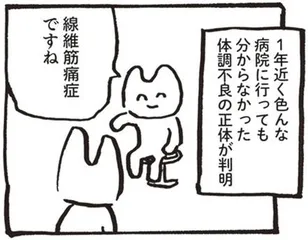 1年近く色んな
病院に行っても
分からなかった
体調不良の正体が判明
線維筋痛症
ですね